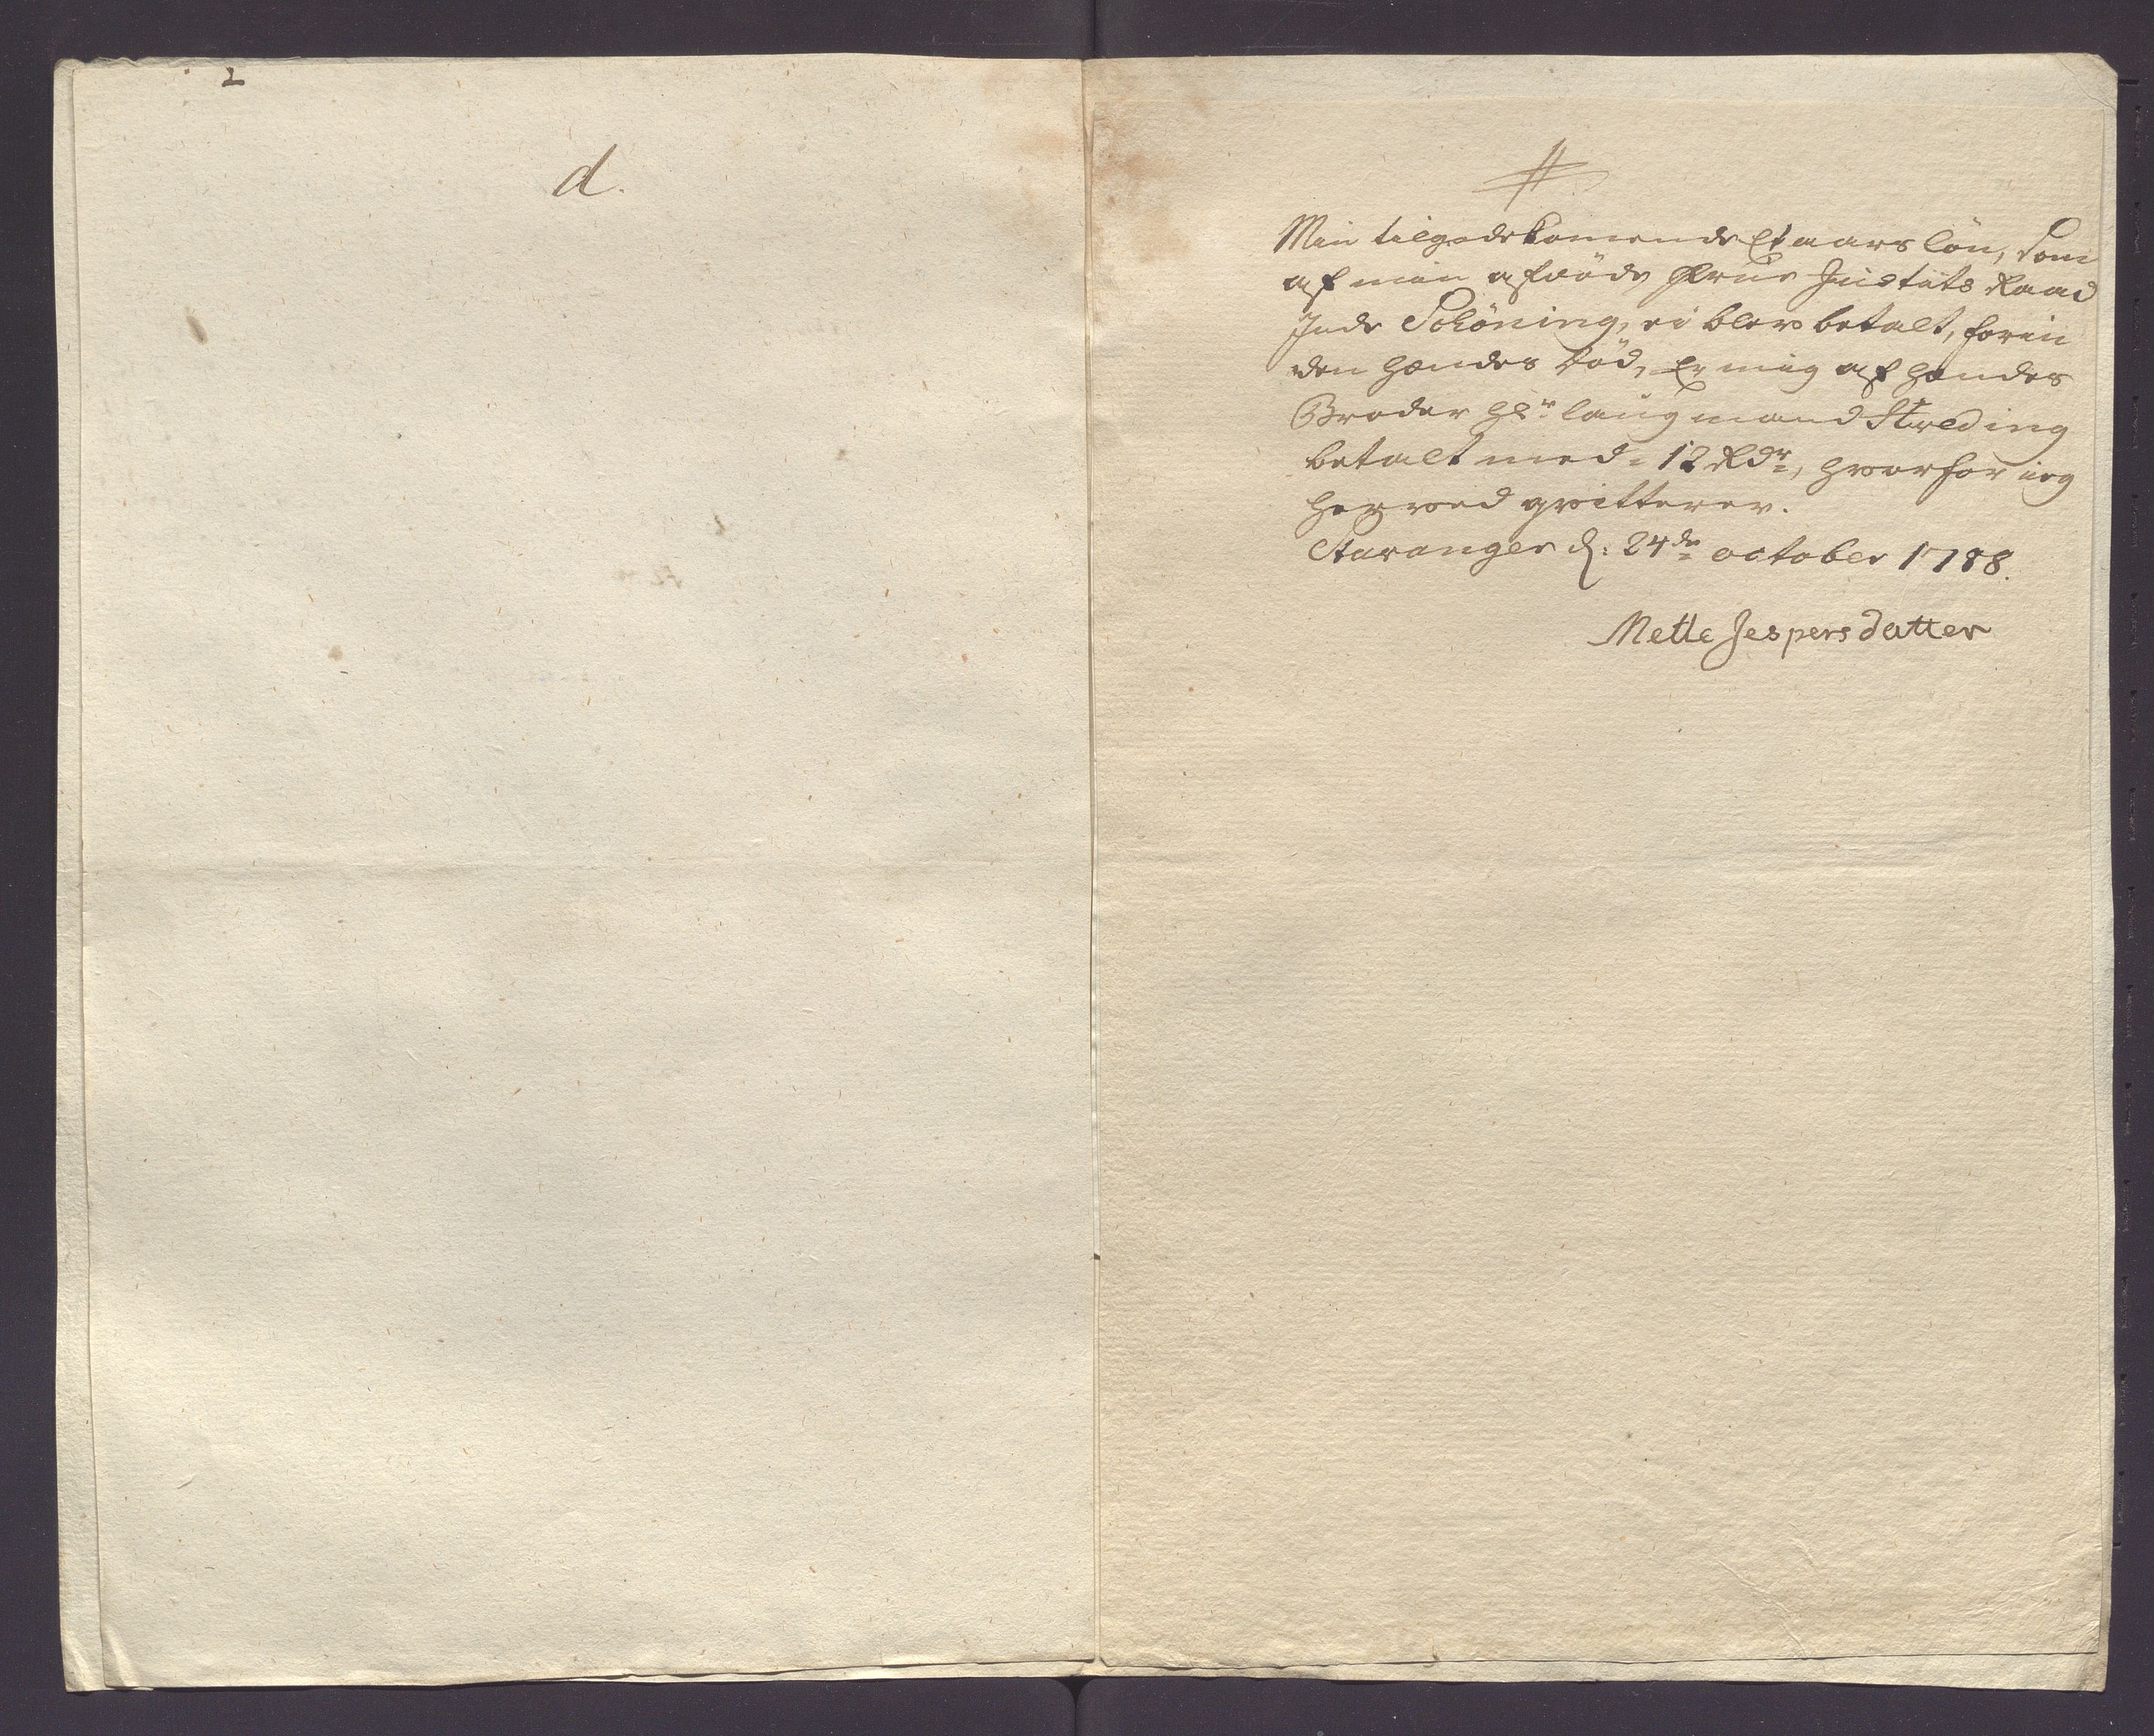 d.
Min tilgodekomende Et aars løn, Som
af min afdöde Frue Justits Raad
inde Schöning, ei blev betalt, forin
den hendes Död, Er mig af hendes
Broder Hr. laugmand Streding
betalt med = 12 Rdr, hvorfor ieg
herved qvitterer.
Stavanger d: 24de october 1788.
Mette Jespersdatter